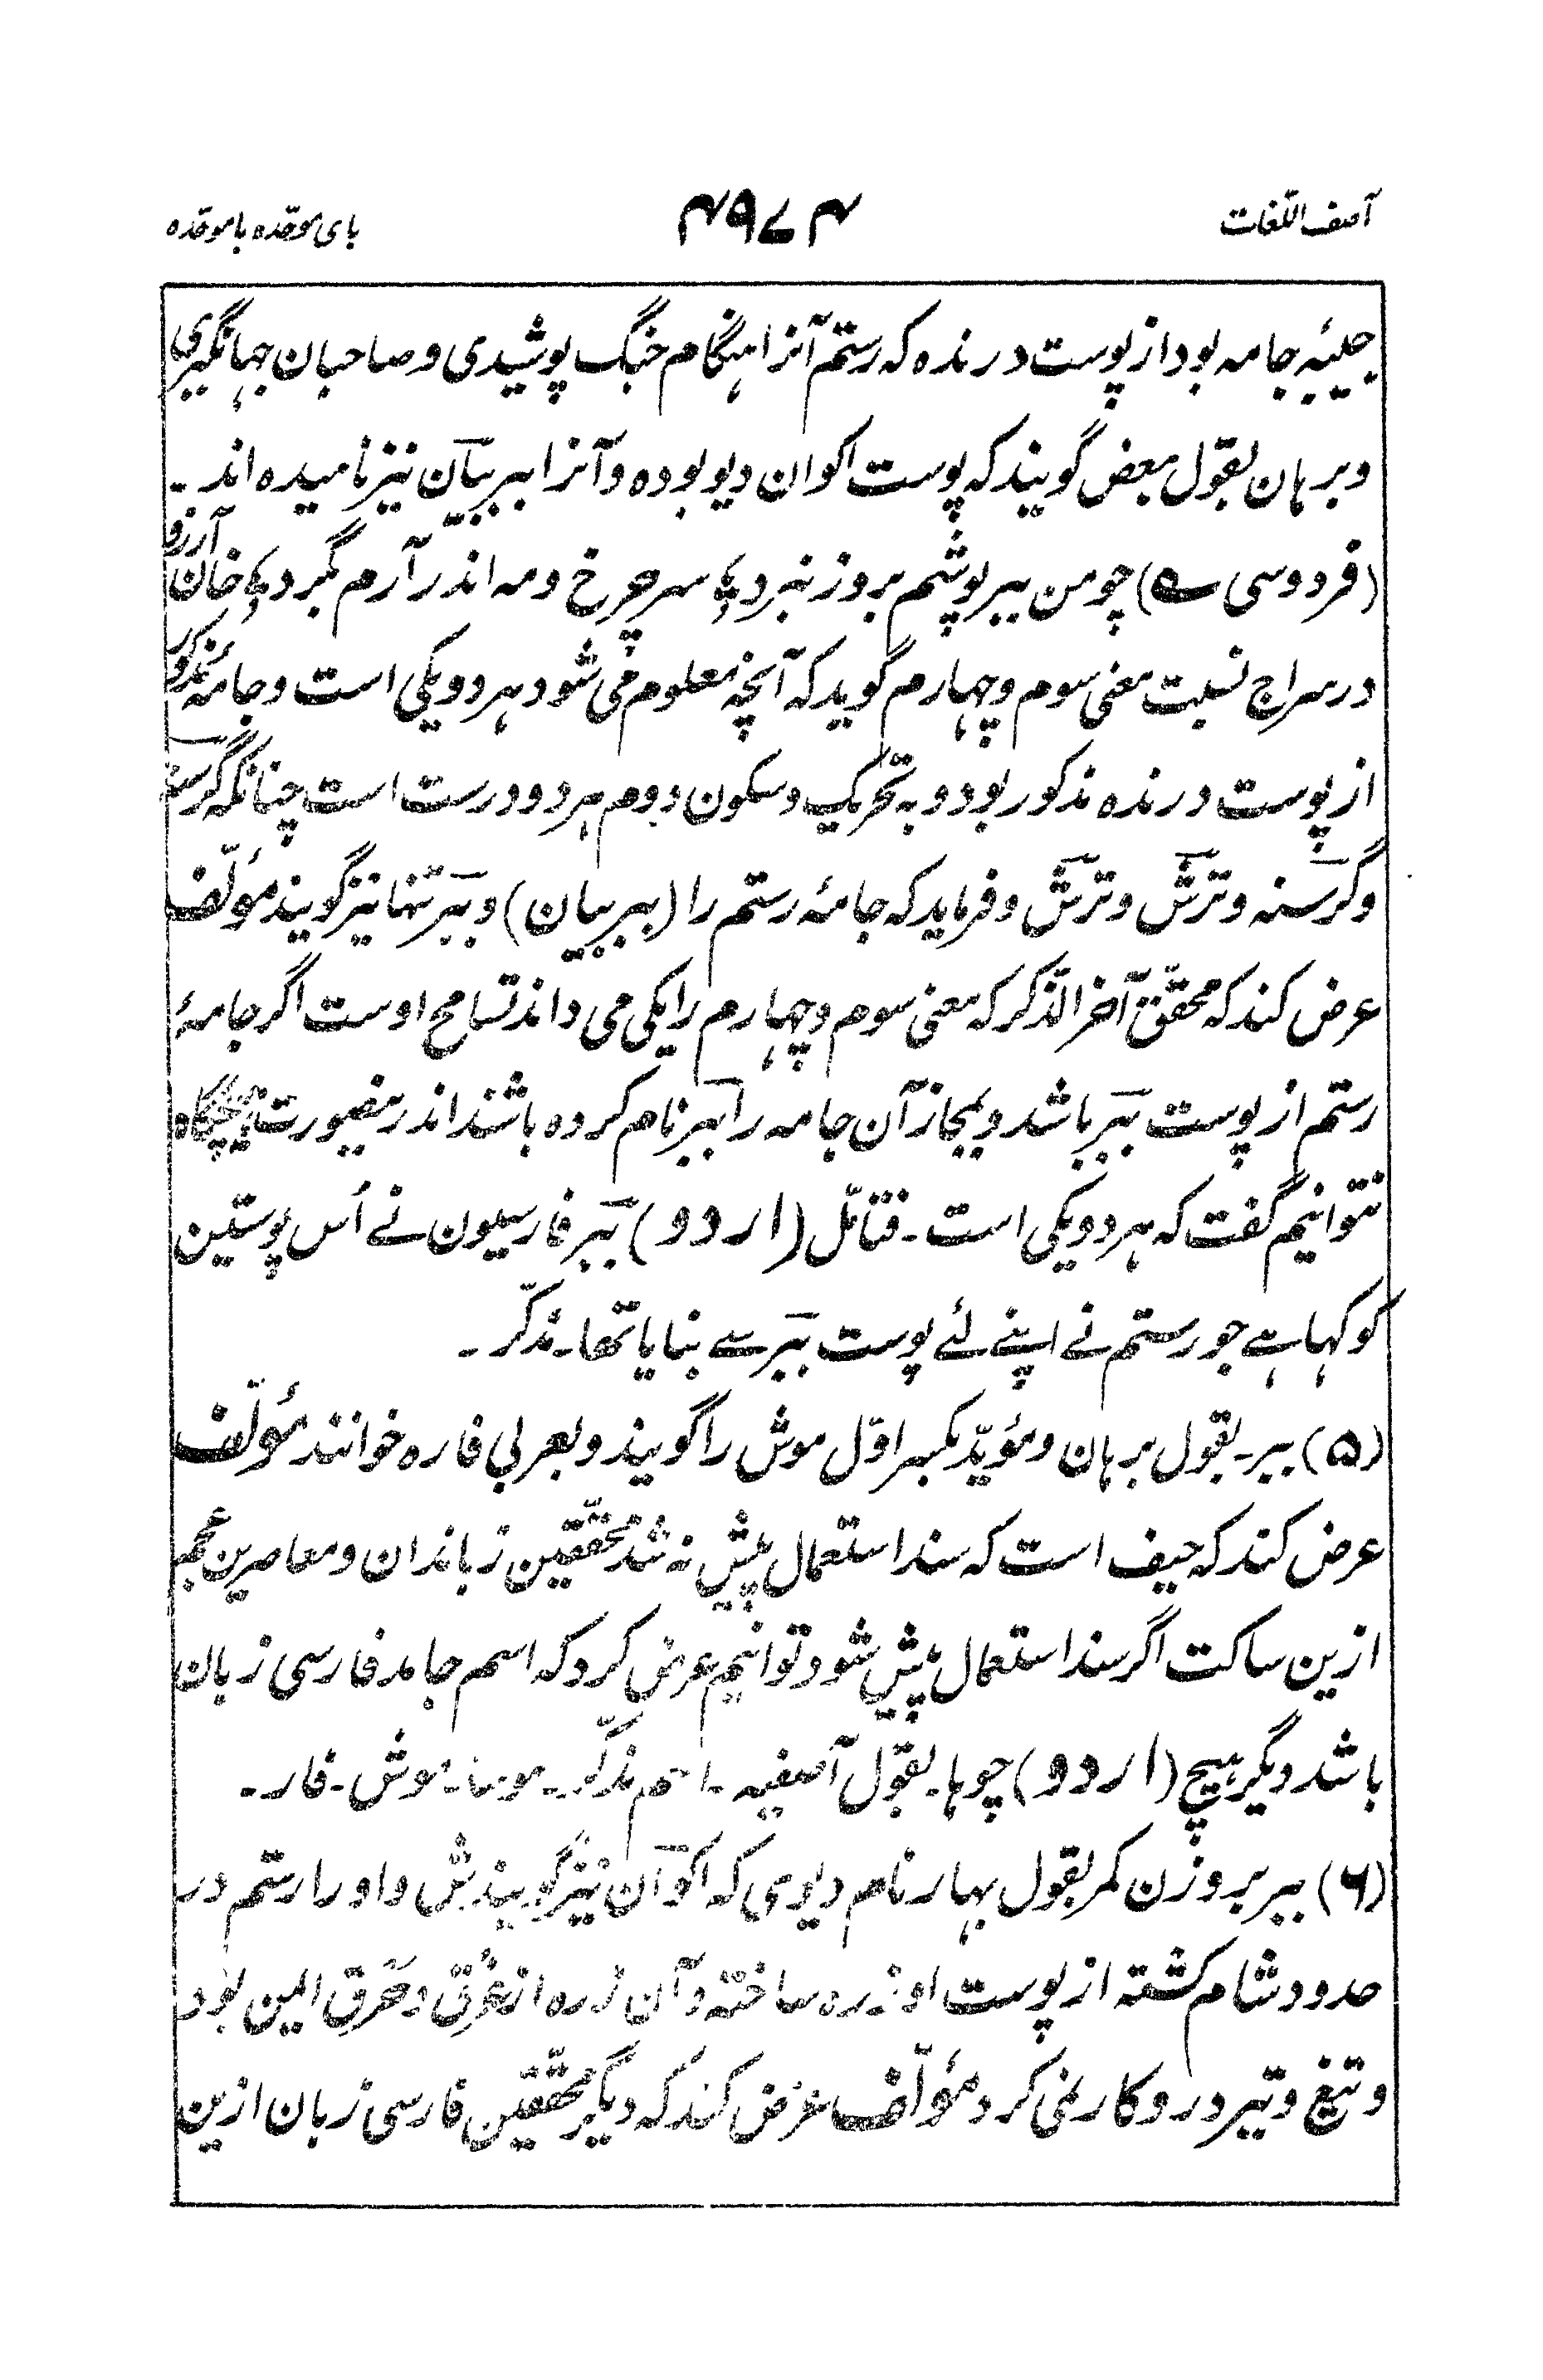 آصف اللّغات
۴۹۷۴
بای موحّده با موحّده
جلیّہ جامہ بود از پوست درنده که رستم آنرا هنگام جنگ پوشیدی و صاحبان جہانگیری
وبرہان بقول بعض گویند که پوست اکوان دیو بوده و آنرا ببر بیان نیز نامیده اند۔
(فردوسی ے) چو من ببر پوشم بروز نبرد ؛ سر چرخ و مه اندر آرم بگرد ؛ خان آرزو
در سراج نسبت معنی سوم و چہارم گوید که آنچه معلوم می شود ہر دو یکی است و جامۂ مذکور
از پوست درنده مذکور بود و به تحریک و سکون دوم ہر دو درست است چنانکه گرسنه
وگرسنه و ترش و ترش و فرماید که جامۂ رستم را (ببر بیان) و ببر تنها نیز گویند مؤلّف
عرض کند که محقّق آخر الذّکر که معنی سوم و چہارم را یکی می داند تسامح اوست اگر جامۂ
رستم از پوست ببر باشد و بمجاز آن جامه را ببر نام کرده باشند اندرینصورت ہیچگاه
نتوانیم گفت که ہر دو یکی است۔ فتامّل (اردو) ببر فارسیون نے اُس پوستین
کو کہا ہے جو رستم نے اپنے لئے پوست ببر سے بنایا تھا۔ مذکّر۔
(۵) ببر۔ بقول برہان و مؤیّد بکسر اوّل موش را گویند و بعربی فاره خوانند مؤلّف
عرض کند که حیف است که سند استعمال پیش نه شد محقّقین زباندان و معاصرین عجم
ازین ساکت اگر سند استعمال پیش شود توانیم عرض کرد که اسم جامد فارسی زبان
باشد دیگر ہیچ (اردو) چوہا۔ بقول آصفیه۔ اسم مذکّر۔ موسا۔ موش۔ فار۔
(۶) ببر بر وزن کمر بقول بہار نام دیوی که اکوان نیز گویندش و او را رستم در
حدود شام کشته از پوست او زره ساخته و آن زره از غرق و حرق ایمن بود
و تیغ و تیر درو کار نمی کرد مؤلّف عرض کند که دیگر محقّقین فارسی زبان ازین